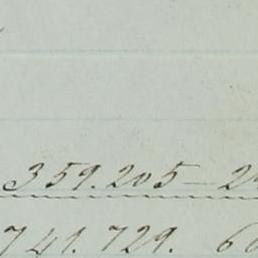 359.205 — 2
741.729. 6